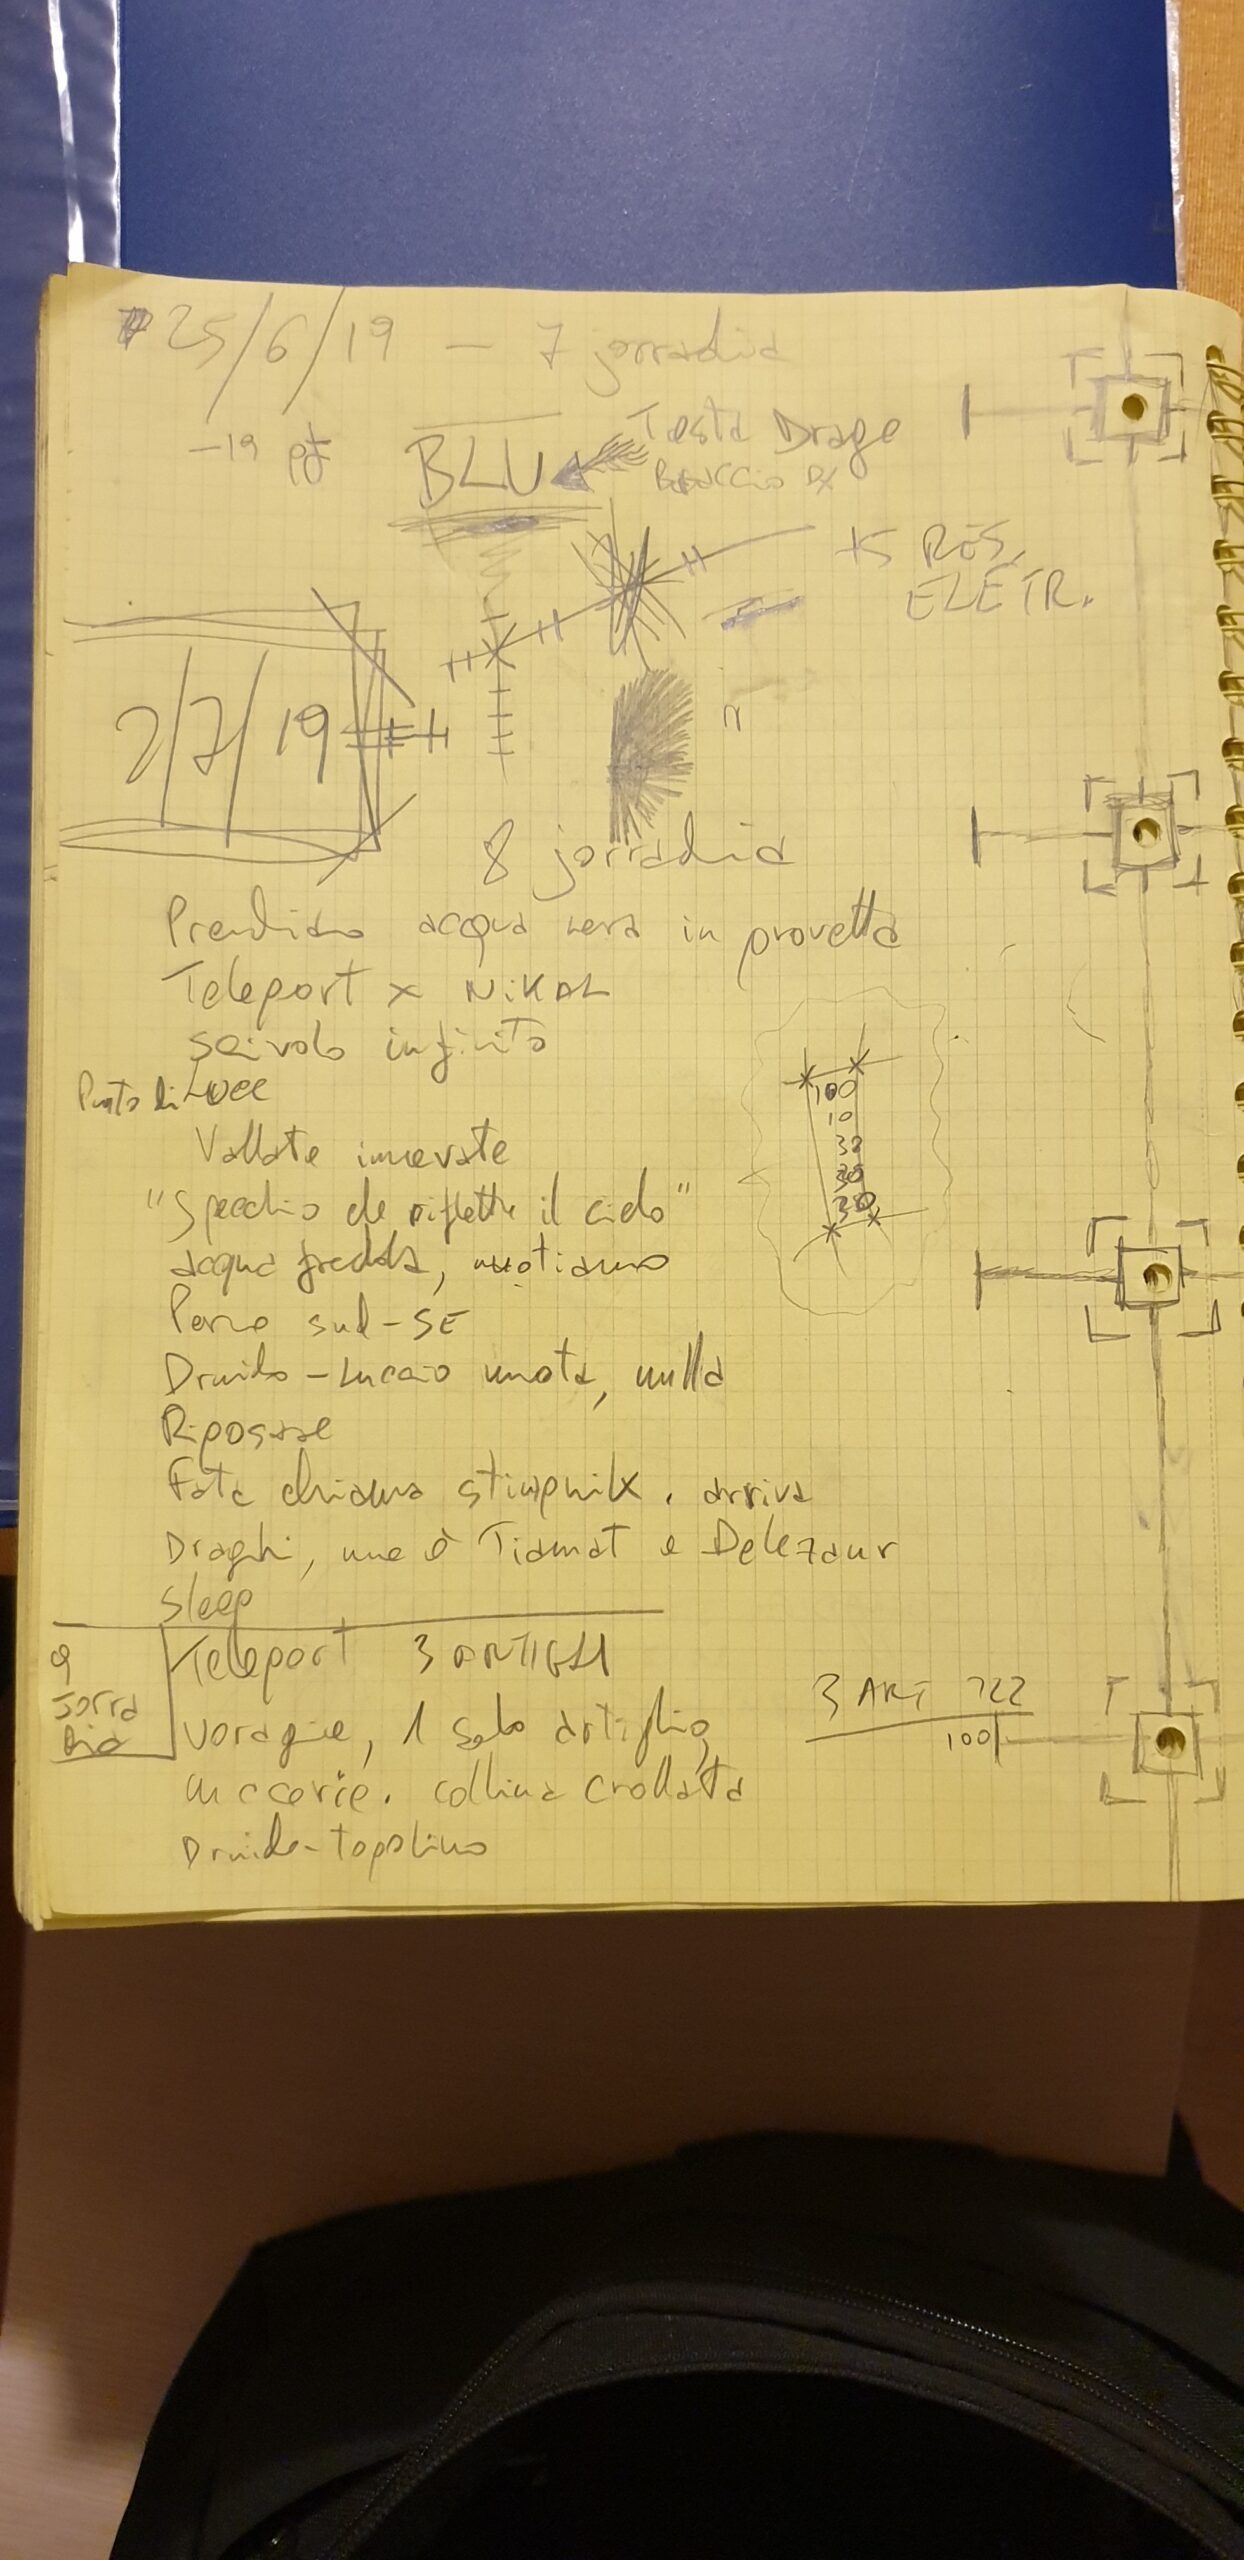 25/6/19 - 7 jorradia
-19 pf
BLU
Testa Drago
Braccio DX
+5 RES.
ELETR.
2/7/19
8 jorradia
Prendiamo acqua nera in provetta
Teleport x NiKAL
scivolo infinito
Punto di Luce
Vallate innevate
"Specchio che riflette il cielo"
acqua fredda, nuotiamo
Perno sud-SE
Druido-Luccio nuota, nulla
Riposare
Fata chiama stimpnilx. arriva
Draghi, uno è Tiamat e Delezaur
Sleep
100
10
32
30
30
9
Jorra
Dia
Teleport 3 ARTIGLI
voragine, 1 solo artiglio,
macerie. collina crollata
Druido-topolino
3 ART 722
100